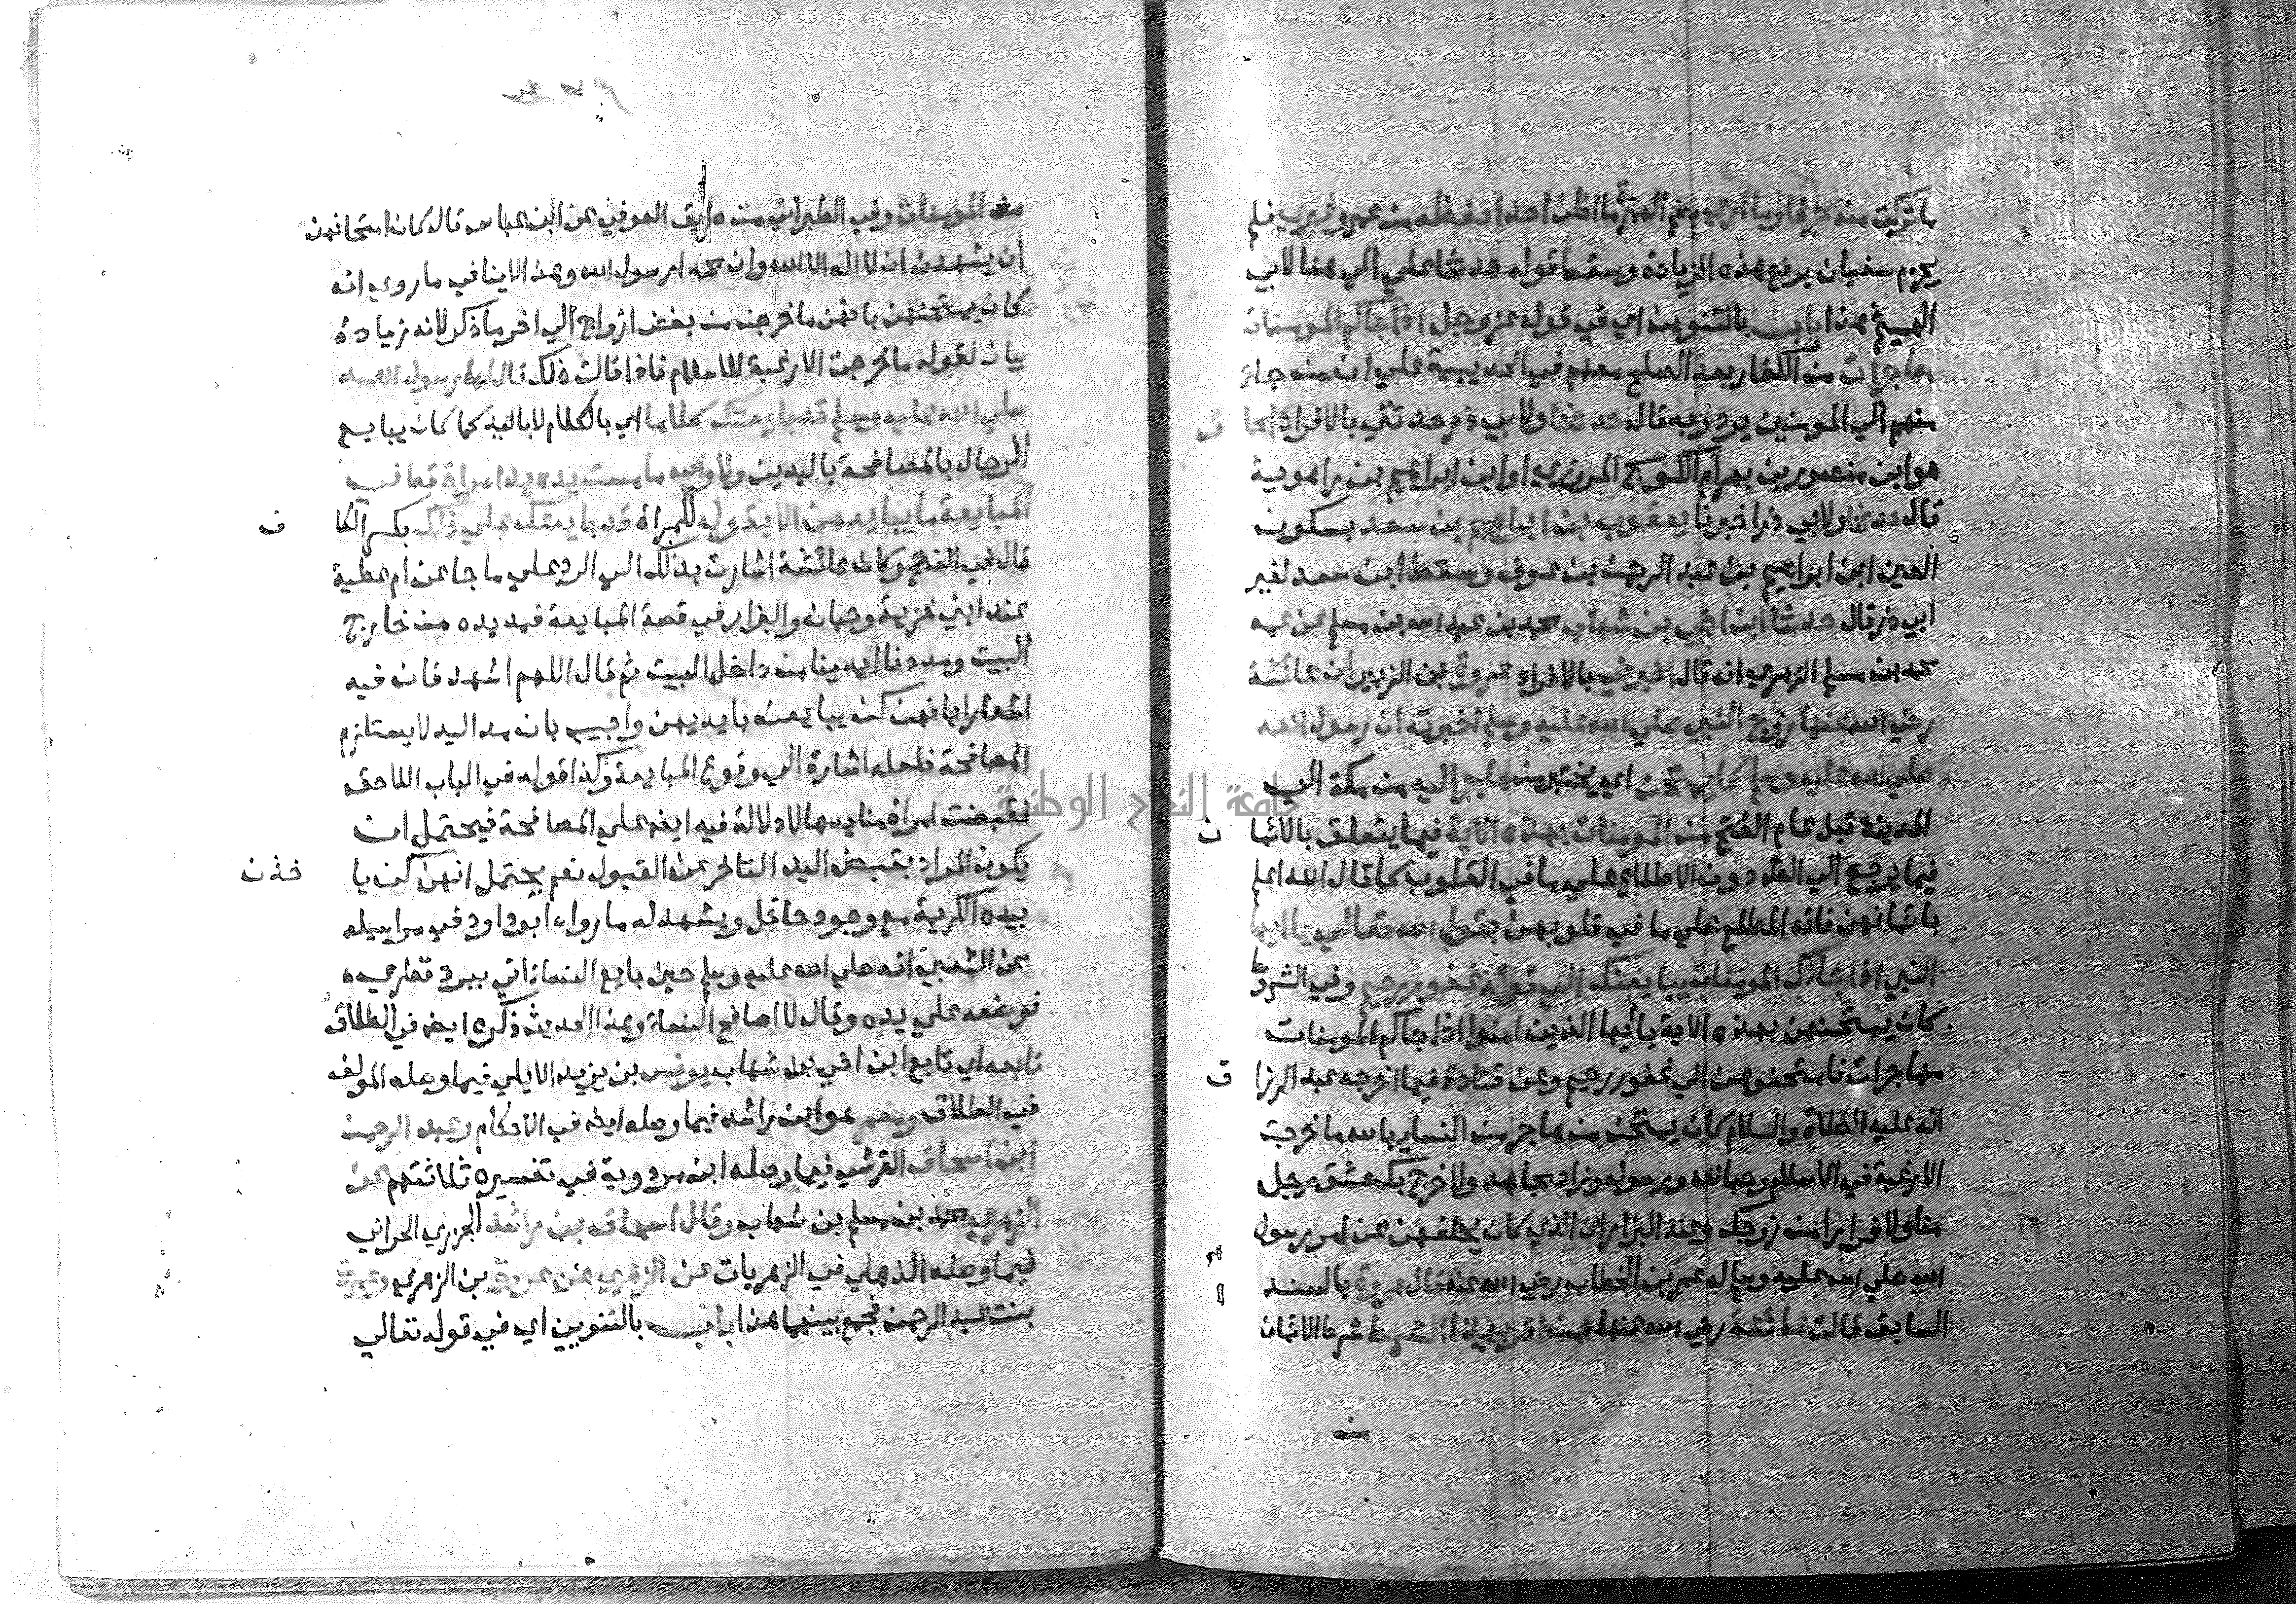 ما تركت منه حرفا وما اري بضم الهمزة ما اظن احدا حفظه من عمرو غيري فلم
يجزم سفيان برفع هذه الزيادة وسقط قوله حدثنا علي الي هنا لابي
الهيثم هذا باب بالتنوين اي في قوله عز وجل اذا جاكم المومنات
مهاجرات من الكفار بعد الصلح معهم في الحديبية علي ان من جاز
منهم الي المومنين يرد وبه قال حدثنا ولابي ذر حدثني بالافراد اسحا ق
هو ابن منصور بن بهرام الكوسج المروزي او ابن ابراهيم بن راهوية
قال حدثنا ولابي ذر اخبرنا يعقوب بن ابراهيم بن سعد بسكون
العين ابن ابراهيم بن عبد الرحمن بن عوف وسقط ابن سعد لغير
ابي ذر قال حدثنا ابن اخي بن شهاب محمد بن عبد الله بن مسلم عن عمه
محمد بن مسلم الزهري انه قال اخبرني بالافراد عروة بن الزبير ان عائشة
رضي الله عنها زوج النبي صلي الله عليه وسلم اخبرته ان رسول الله
صلي الله عليه وسلم كان يمتحن اي يختبر من هاجر اليه من مكة الي
المدينة قبل عام الفتح من المومنات بهذه الاية فيما يتعلق بالايما ن
فيما يرجع الي الظاهر دون الاطلاع علي ما في القلوب كما قال الله اعلم
بايمانهن فانه المطلع علي ما في قلوبهن بقول الله تعالي يا ايها
النبي اذا جاك المومنات يبايعنك الي قوله غفور رحيم وفي الشروط
كان يمتحنهن بهذه الاية يا أيها الذين امنوا اذا جاكم المومنات
مهاجرات فامتحنوهن الي غفور رحيم وعن قتادة فيما اخرجه عبد الرزا ق
انه عليه الصلاة والسلام كان يمتحن من هاجر من النساء بالله ما خرجت
الا رغبة في الاسلام وحبا لله ورسوله وزاد مجاهد ولا خرج بك عشق رجل
منا ولا فرارا من زوجك وعند البزار ان الذي كان يحلفهن عن امر رسول
الله صلي الله عليه وسلم له عمر بن الخطاب رضي الله عنه قال عروة بالسند
السابق قالت عائشة رضي الله عنها فمن اقر بهذا الشرط شرط الايمان
من
من المومنات وفي الطبراني من طريق العوفي عن ابن عباس قال كان امتحانهن
أن يشهدن ان لا اله الا الله وان محمدا رسول الله وهذا لا ينافي ما روي انه
كان يمتحنهن بانهن ما خرجن من بغض ازواج الي اخر ما ذكر لانه زيادة
بيان لقوله ما خرجت الا رغبة للاسلام فاذا قالت ذلك قال لها رسول الله
صلي الله عليه وسلم قد بايعتك كلاما اي بالكلام لا باليد كما كان يبايع
الرجال بالمصافحة باليدين ولا والله ما مست يده يد امراة قط في
المبايعة ما يبايعهن الا بقوله للمراة قد بايعتك علي ذلك بكسر الكا ف
قال في الفتح وكان عائشة اشارت بذلك الي الرد علي ما جا عن ام عطية
عند ابني خزيمة وحبان والبزار في قصة المبايعة فمد يده من خارج
البيت ومددنا ايدينا من داخل البيت ثم قال اللهم اشهد فان فيه
اشعارا بانهن كن يبايعنه بايديهن واجيب بان مد اليد لا يستلزم
المصافحة فلعله اشارة الي وقوع المبايعة وكذا قوله في الباب اللاحق
فقبضت امراة منا يدها لا دلالة فيه ايضا علي المصافحة فيحتمل ان
يكون المراد بقبض اليد التاخر عن القبول نعم يحتمل انهن كن يا خذن
بيده الكريمة مع وجود حائل ويشهد له ما رواه ابو داود في مراسيله
عن الشعبي انه صلي الله عليه وسلم حين بايع النساء اتي ببرد قطري
فوضعه علي يده وقال لا اصافح النساء وهذا الحديث ذكره ايضا في الطلاق
تابعه اي تابع ابن اخي بن شهاب يونس بن يزيد الايلي فيما وصله المولف
في الطلاق ومعمر هو ابن راشد فيما وصله ايضا في الاحكام وعبد الرحمن
ابن اسحاق القرشي فيما وصله ابن مردوية في تفسيره ثلاثتهم عن
الزهري محمد بن مسلم بن شهاب وقال اسحاق بن راشد الجزري الحراني
فيما وصله الذهلي في الزهريات عن الزهري عن عروة بن الزهري وعمرة
بنت عبد الرحمن فجمع بينهما هذا باب بالتنوين اي في قوله تعالي
جامعة النجاح الوطنية